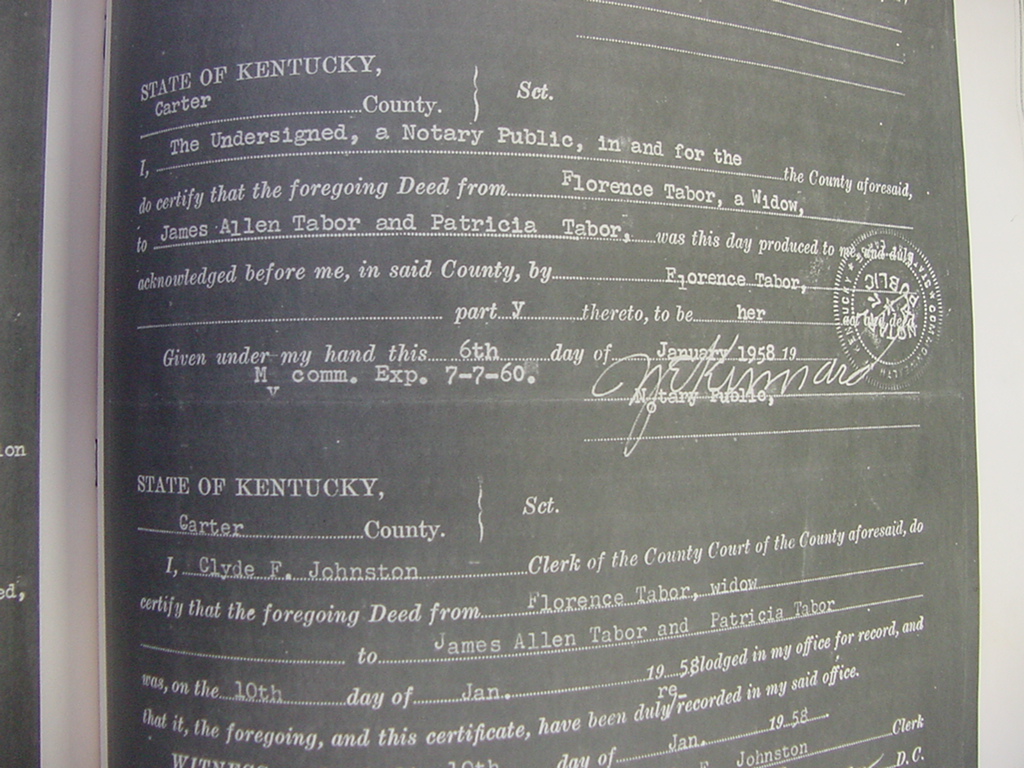 STATE OF KENTUCKY,
Carter County. Sct.
I, The Undersigned, a Notary Public, in and for the the County aforesaid,
do certify that the foregoing Deed from Florence Tabor, a Widow,
to James Allen Tabor and Patricia Tabor, was this day produced to me, and duly
acknowledged before me, in said County, by Florence Tabor,
part y thereto, to be her act and deed.
Given under my hand this 6th day of January 1958 19
My comm. Exp. 7-7-60.
Notary Public,
STATE OF KENTUCKY,
Carter County. Sct.
I, Clyde F. Johnston Clerk of the County Court of the County aforesaid, do
certify that the foregoing Deed from Florence Tabor, widow
to James Allen Tabor and Patricia Tabor
was, on the 10th day of Jan. 19 58 lodged in my office for record, and
re-
that it, the foregoing, and this certificate, have been duly recorded in my said office.
10th day of Jan. 19 58
Johnston Clerk
D.C.
on
ed,